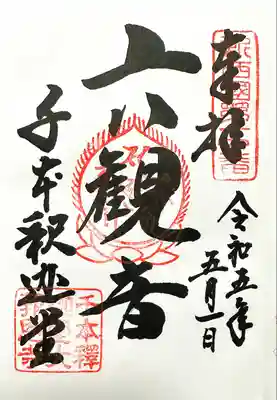 奉拝
令和五年
五月一日
六観音
千本釈迦堂